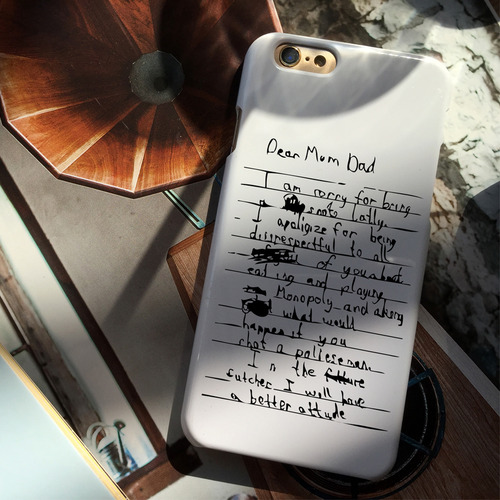 Dear Mum Dad
I am sorry for being
a snoto latly.
I apoligize for being
disrespectful to all
of you about
eating and playing
Monopoly and aking
what would
happen if you
shot a policeman.
I n the
futcher I will have
a better attude